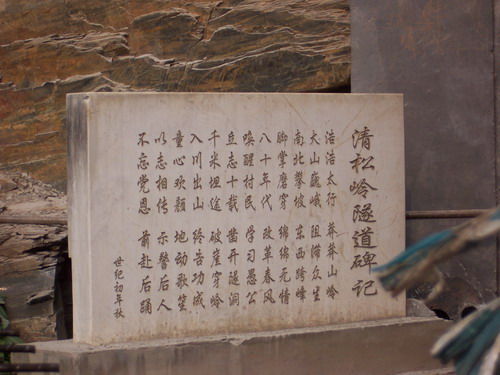 清松岭隧道碑记
浩浩太行 莽莽山岭
大山巍峨 阻滞众生
南北攀坡 东西跨峰
脚掌磨穿 绵绵无情
八十年代 改革春风
唤醒村民 学习愚公
立志十载 凿开隧洞
千米坦途 破崖穿岭
入川出山 终告功成
童心欢颜 地动歌笙
以志相传 示警后人
不忘党恩 前赴后踊
世纪初年秋